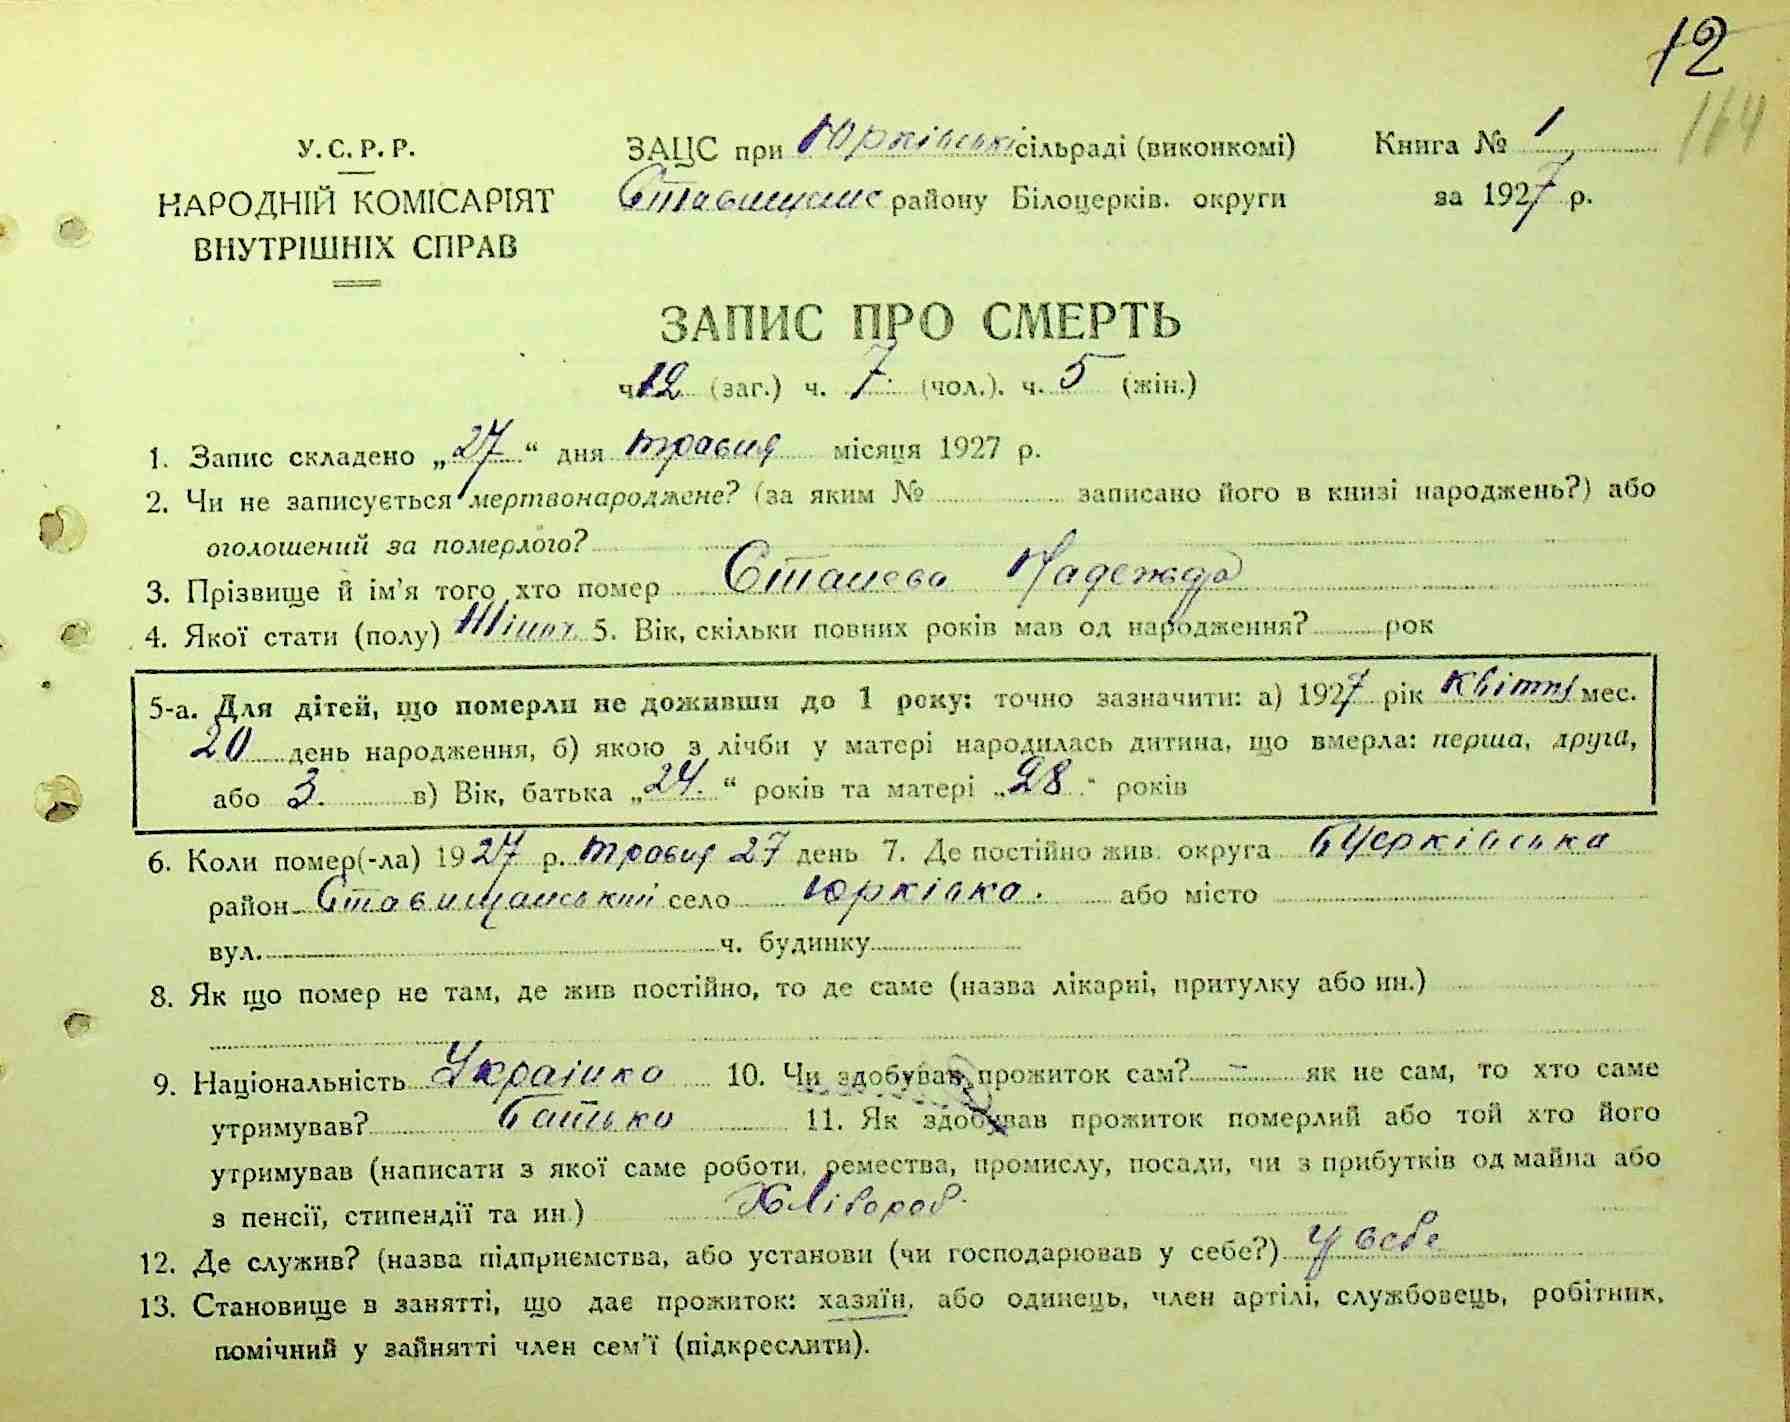 12
164
У.С.Р.Р.
НАРОДНІЙ КОМІСАРІЯТ
ВНУТРІШНІХ СПРАВ
ЗАЦС при Юрківські сільраді (виконкомі)
Ставищанс району Білоцерків. округи
Книга № 1
за 1927 р.
ЗАПИС ПРО СМЕРТЬ
ч. 12 (заг.) ч. 7. (чол.). ч. 5 (жін.)
1. Запис складено „27“ дня травня місяця 1927 р.
2. Чи не записується мертвонароджене? (за яким № записано його в книзі народжень?) або
оголошений за померлого?
3. Прізвище й ім'я того хто помер Надежда
4. Якої стати (полу) Жіноч. 5. Вік, скільки повних років мав од народження? рок
5-а. Для дітей, що померли не доживши до 1 року: точно зазначити: а) 1927 рік квітня мес.
20 день народження, б) якою з лічби у матері народилась дитина, що вмерла: перша, друга,
або 3. в) Вік, батька „24.“ років та матері „28.“ років
6. Коли помер(-ла) 1927 р. травня 27 день 7. Де постійно жив. округа БЦерківська
район Ставищанський село Юрківка. або місто
вул. ч. будинку
8. Як що помер не там, де жив постійно, то де саме (назва лікарні, притулку або ин.)
9. Національність Українка 10. Чи здобував прожиток сам? – як не сам, то хто саме
утримував? Батько 11. Як здобував прожиток померлий або той хто його
утримував (написати з якої саме роботи, ремества, промислу, посади, чи з прибутків од майна або
з пенсії, стипендії та ин.) Хлібороб.
12. Де служив? (назва підприємства, або установи (чи господарював у себе?) У себе
13. Становище в занятті, що дає прожиток: хазяїн, або одинець, член артілі, службовець, робітник,
помічний у зайнятті член сем'ї (підкреслити).